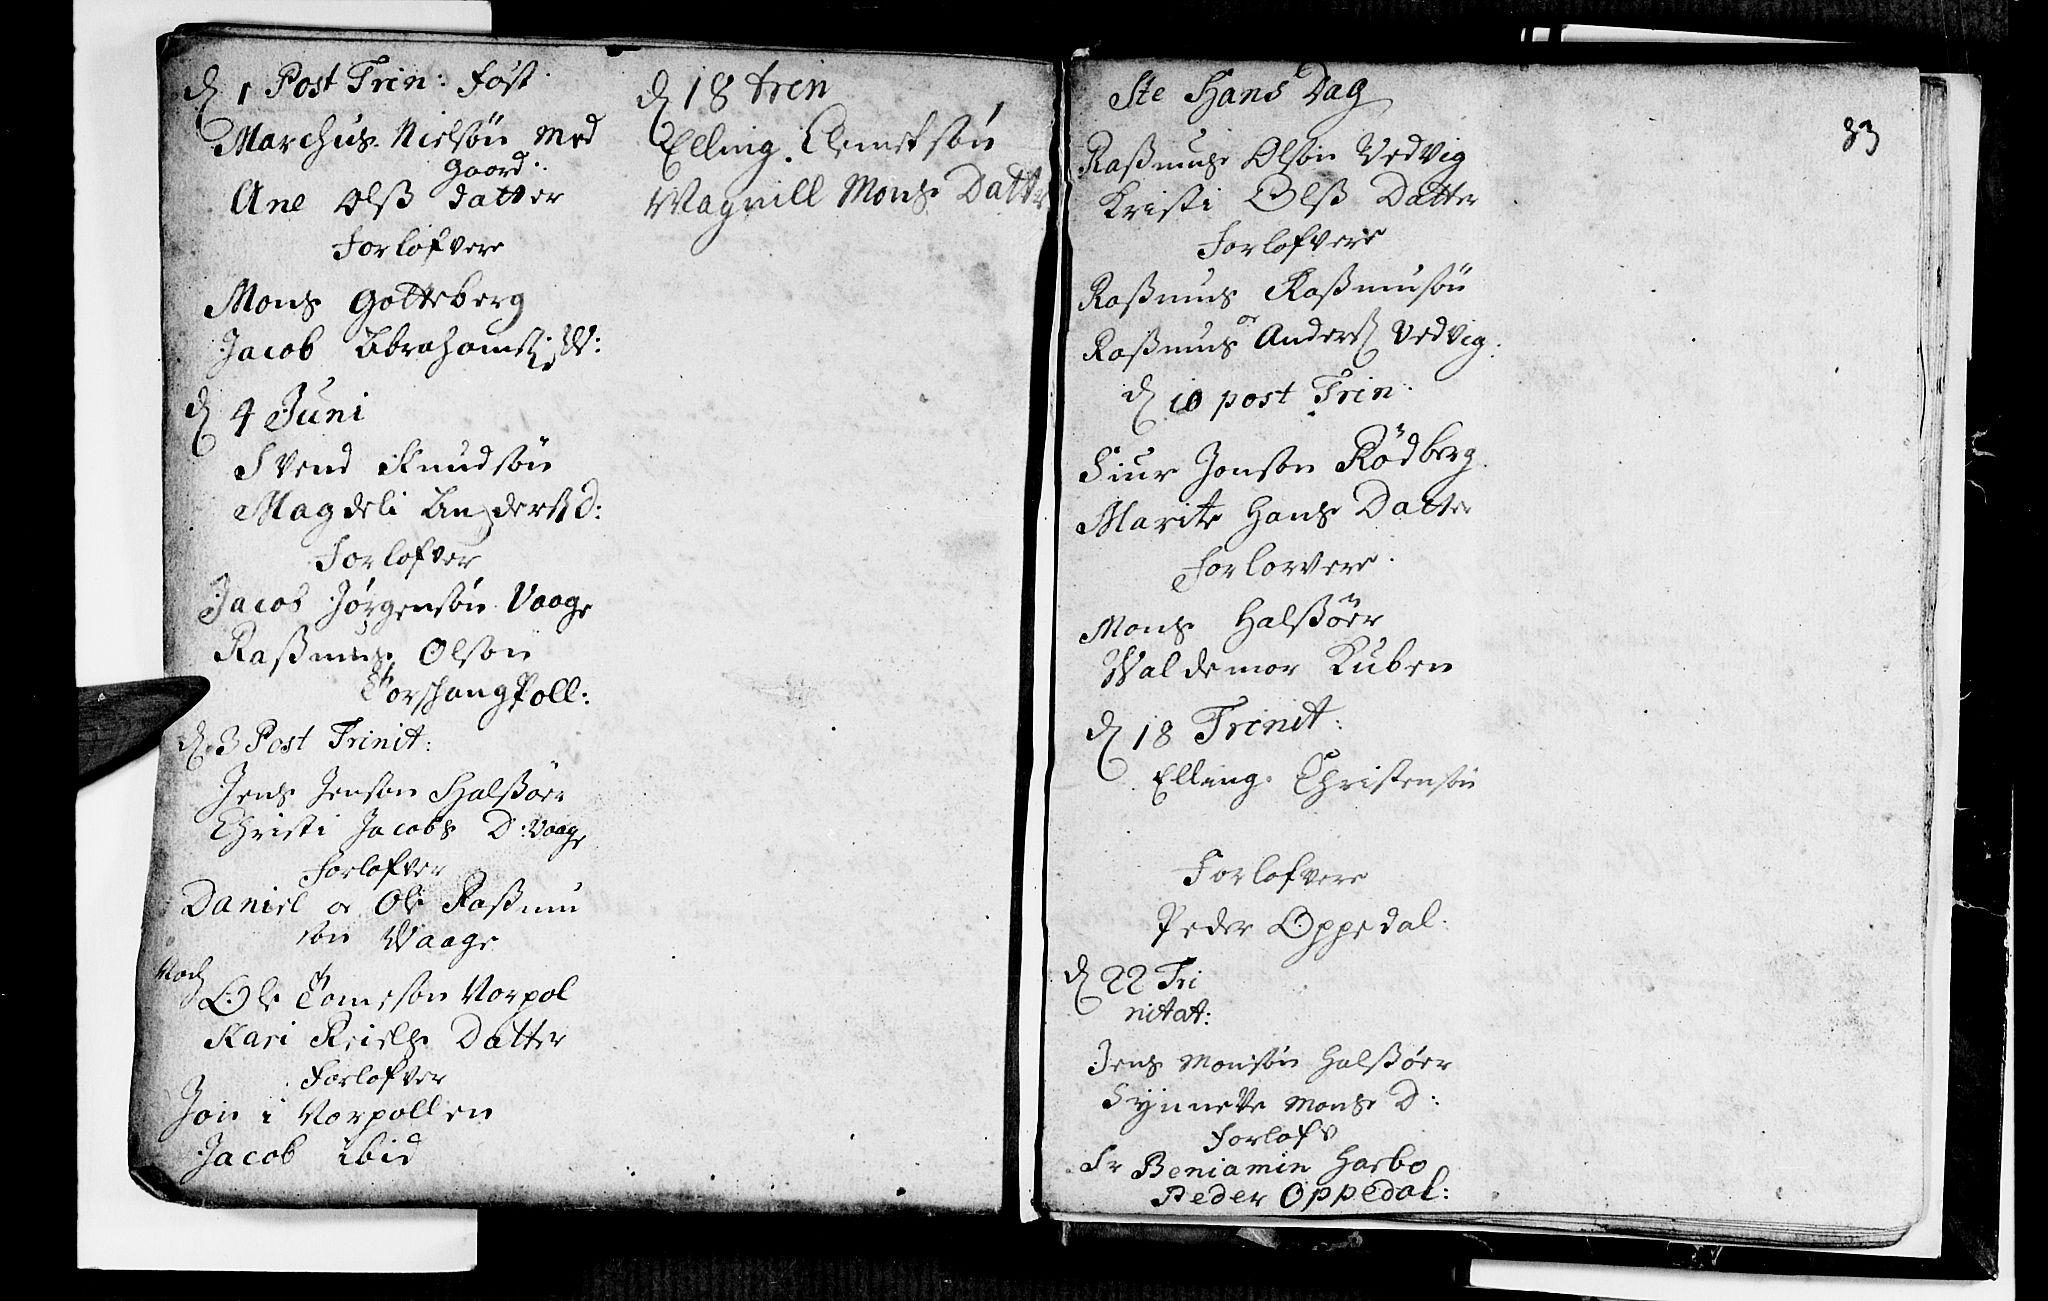 d 1 Post Trin: föst.
Marchus Nielsön Med
gaard.
Ane Olsß datter
Forlofvere
Mons Gotteberg
Jacob Abrahams W:
d 4 Juni
Svend Knudsön
Magdeli Anders D:
Forlofver
Jacob Jörgensön Vaage
Raßmus Olson
Torshang Poll:
d. 3 Post Trinit:
Jens Jenson Halßöer
Christi Jacobs D: Vaage
Forlofver
Daniel oe Ole Raßmu
sön Waage
Noch
Ole Tomeson Vorpol
Kari Datter
Forlofver
Jon i Vorpollen
Jacob ibid
d 18 trin
Elling Clemetsön
Magnill Mons Datter
33
Ste Hans Dag
Raßmus Olson Vedvig
Kristi Olsß Datter
Forlofvere
Raßmus Raßmusön
Raßmus oe Anders Vedvig:
d 10 post Trin.
Siur Jonson Rödberg
Marite Hans Datter
Forlorvere.
Mons Halßöer
Waldemor Kuben
d 18 Trinit:
Elling Christensön
Forlofvere
Peder Oppedal:
d 22 Tri
nitat:
Jens Monsön Halßöer
Synneve Mons D:
Forlofv
Fr Beniamin Harbo
Peder Oppedal: